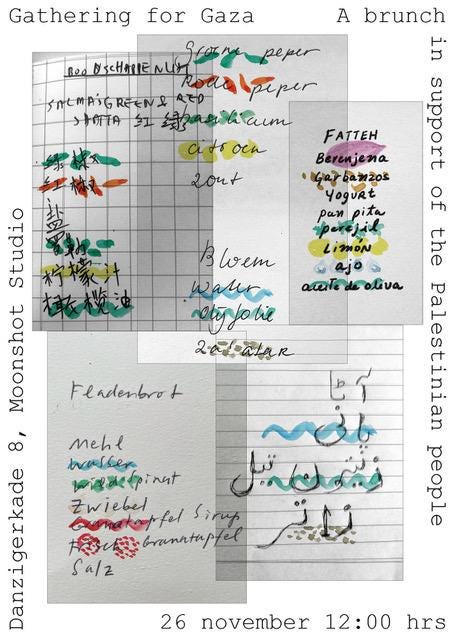 Gathering for Gaza
A brunch
in support of the Palestinian people
Danzigerkade 8, Moonshot Studio
26 november 12:00 hrs
BOODSCHAPPENLIJST
SALMA'S GREEN & RED
SHATTA 红 绿
绿辣
红辣
盐
柠檬汁
橄榄油
Groene peper
Rode peper
basilicum
citroen
zout
Bloem
water
olijfolie
zaatar
FATTEH
Berenjena
Garbanzos
Yogurt
pan pita
perejil
Limón
ajo
aceite de oliva
Fladenbrot
Mehl
Wasser
wildspinat
Zwiebel
Granatapfel Sirup
Frisch Granatapfel
Salz
آٹا
پانی
زیتون تیل
زاتر